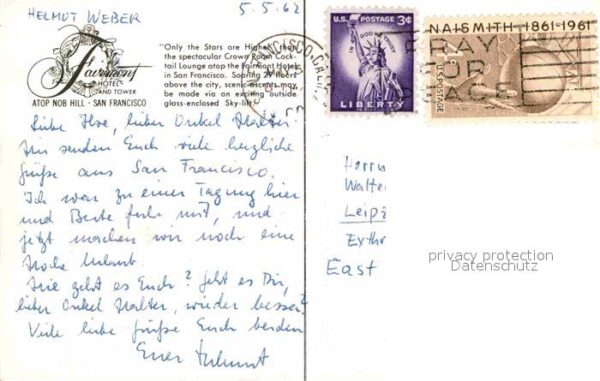 HELMUT WEBER
5.5.62
Fairmont
HOTEL
AND TOWER
ATOP NOB HILL · SAN FRANCISCO
"Only the Stars are Higher" than
the spectacular Crown Room Cock-
tail Lounge atop the Fairmont Hotel
in San Francisco. Soaring 24 floors
above the city, scenic ascents may
be made via an exciting outside
glass-enclosed Sky-lift.
U.S. POSTAGE 3¢
IN GOD WE TRUST
LIBERTY
NAISMITH 1861-1961
U.S. POSTAGE
SAN FRANCISCO, CALIF.
PRAY
FOR
PEACE
Liebe Ilse, lieber Onkel Walter!
Wir senden Euch viele herzliche
Grüße aus San Francisco.
Ich war zu einer Tagung hier
und Beate fuhr mit, und
jetzt machen wir noch eine
Woche Urlaub.
Wie geht es Euch? Geht es Dir,
lieber Onkel Walter, wieder besser?
Viele liebe Grüße Euch beiden
Euer Helmut
Herrn
Walter
Leipz
East
privacy protection
Datenschutz